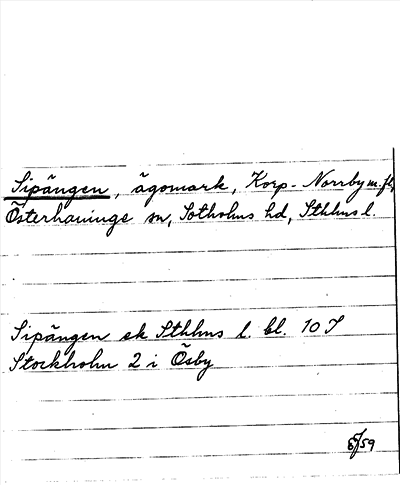 Sipängen, ägomark, Korp-Norrby m.fl,
Österhaninge sn, Sotholms hd, Sthlms l.
Sipängen ek Sthlms l. bl. 10 I
Stockholm 2 i Ösby
/59